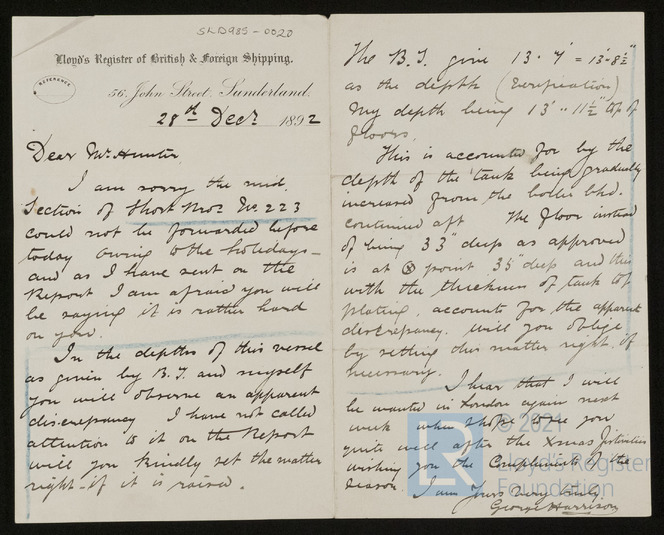 SLD985-0020
Lloyd's Register of British & Foreign Shipping.
REFERENCE
56, John Street, Sunderland.
28th Decr 1892
Dear Mr. Hunter,
I am sorry the mid.
Section of Short Bros No 223
could not be forwarded before
today owing to the holidays -
and as I have sent on the
Report I am afraid you will
be saying it is rather hard
on you.
In the depths of this vessel
as given by B.T. and myself
you will observe an apparent
discrepancy I have not called
attention to it on the Report
will you kindly set the matter
right if it is raised.
The B.T. give 13.7' = 13'-8½"
as the depth (Verification)
My depth being 13'..11½" top of
floors.
This is accounted for by the
depth of the tank being gradually
increased from the boiler bhd.
continued aft The floor instead
of being 33" deep as approved
is at ⊗ point 35" deep and this
with the thickness of tank top
plating, accounts for the apparent
discrepancy. will you oblige
by setting this matter right if
necessary.
I hear that I will
be wanted in London again next
week when I hope to see you
quite well after the Xmas festivities
wishing you the Compliments of the
Season
I am Yours Very truly,
George Harrison
LR
© 2021
Lloyd's Register
Foundation